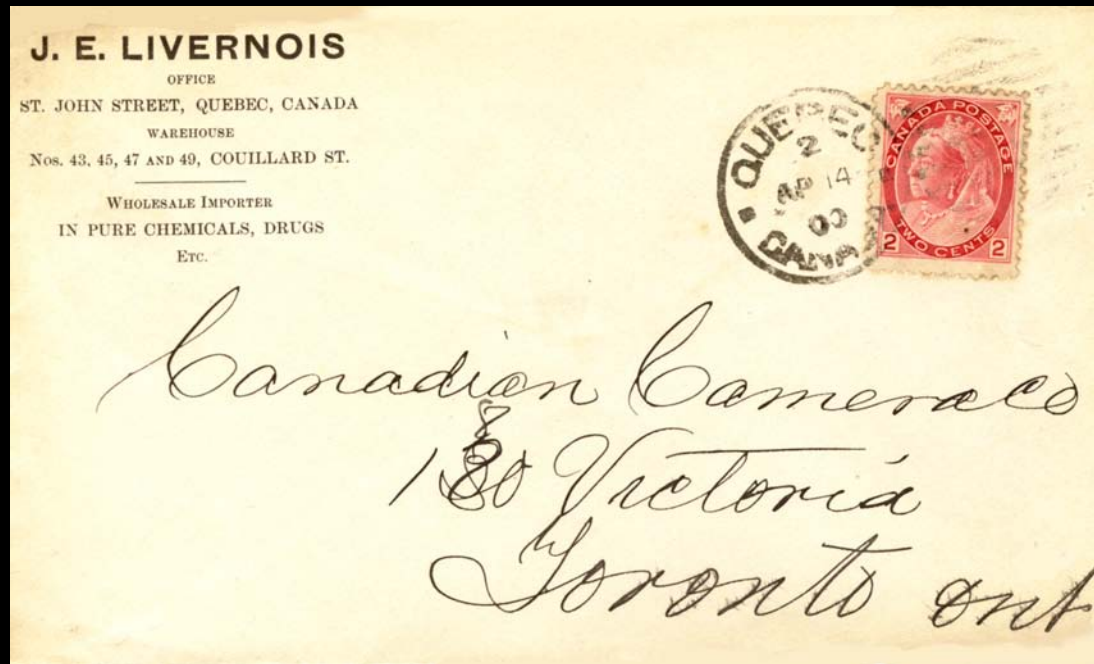 J. E. LIVERNOIS
OFFICE
ST. JOHN STREET, QUEBEC, CANADA
WAREHOUSE
Nos. 43, 45, 47 AND 49, COUILLARD ST.
WHOLESALE IMPORTER
IN PURE CHEMICALS, DRUGS
ETC.
QUEBEC
2
AP 14
00
CANADA
CANADA POSTAGE
TWO CENTS
2 2
Canadian Camera Co
180 Victoria
Toronto Ont